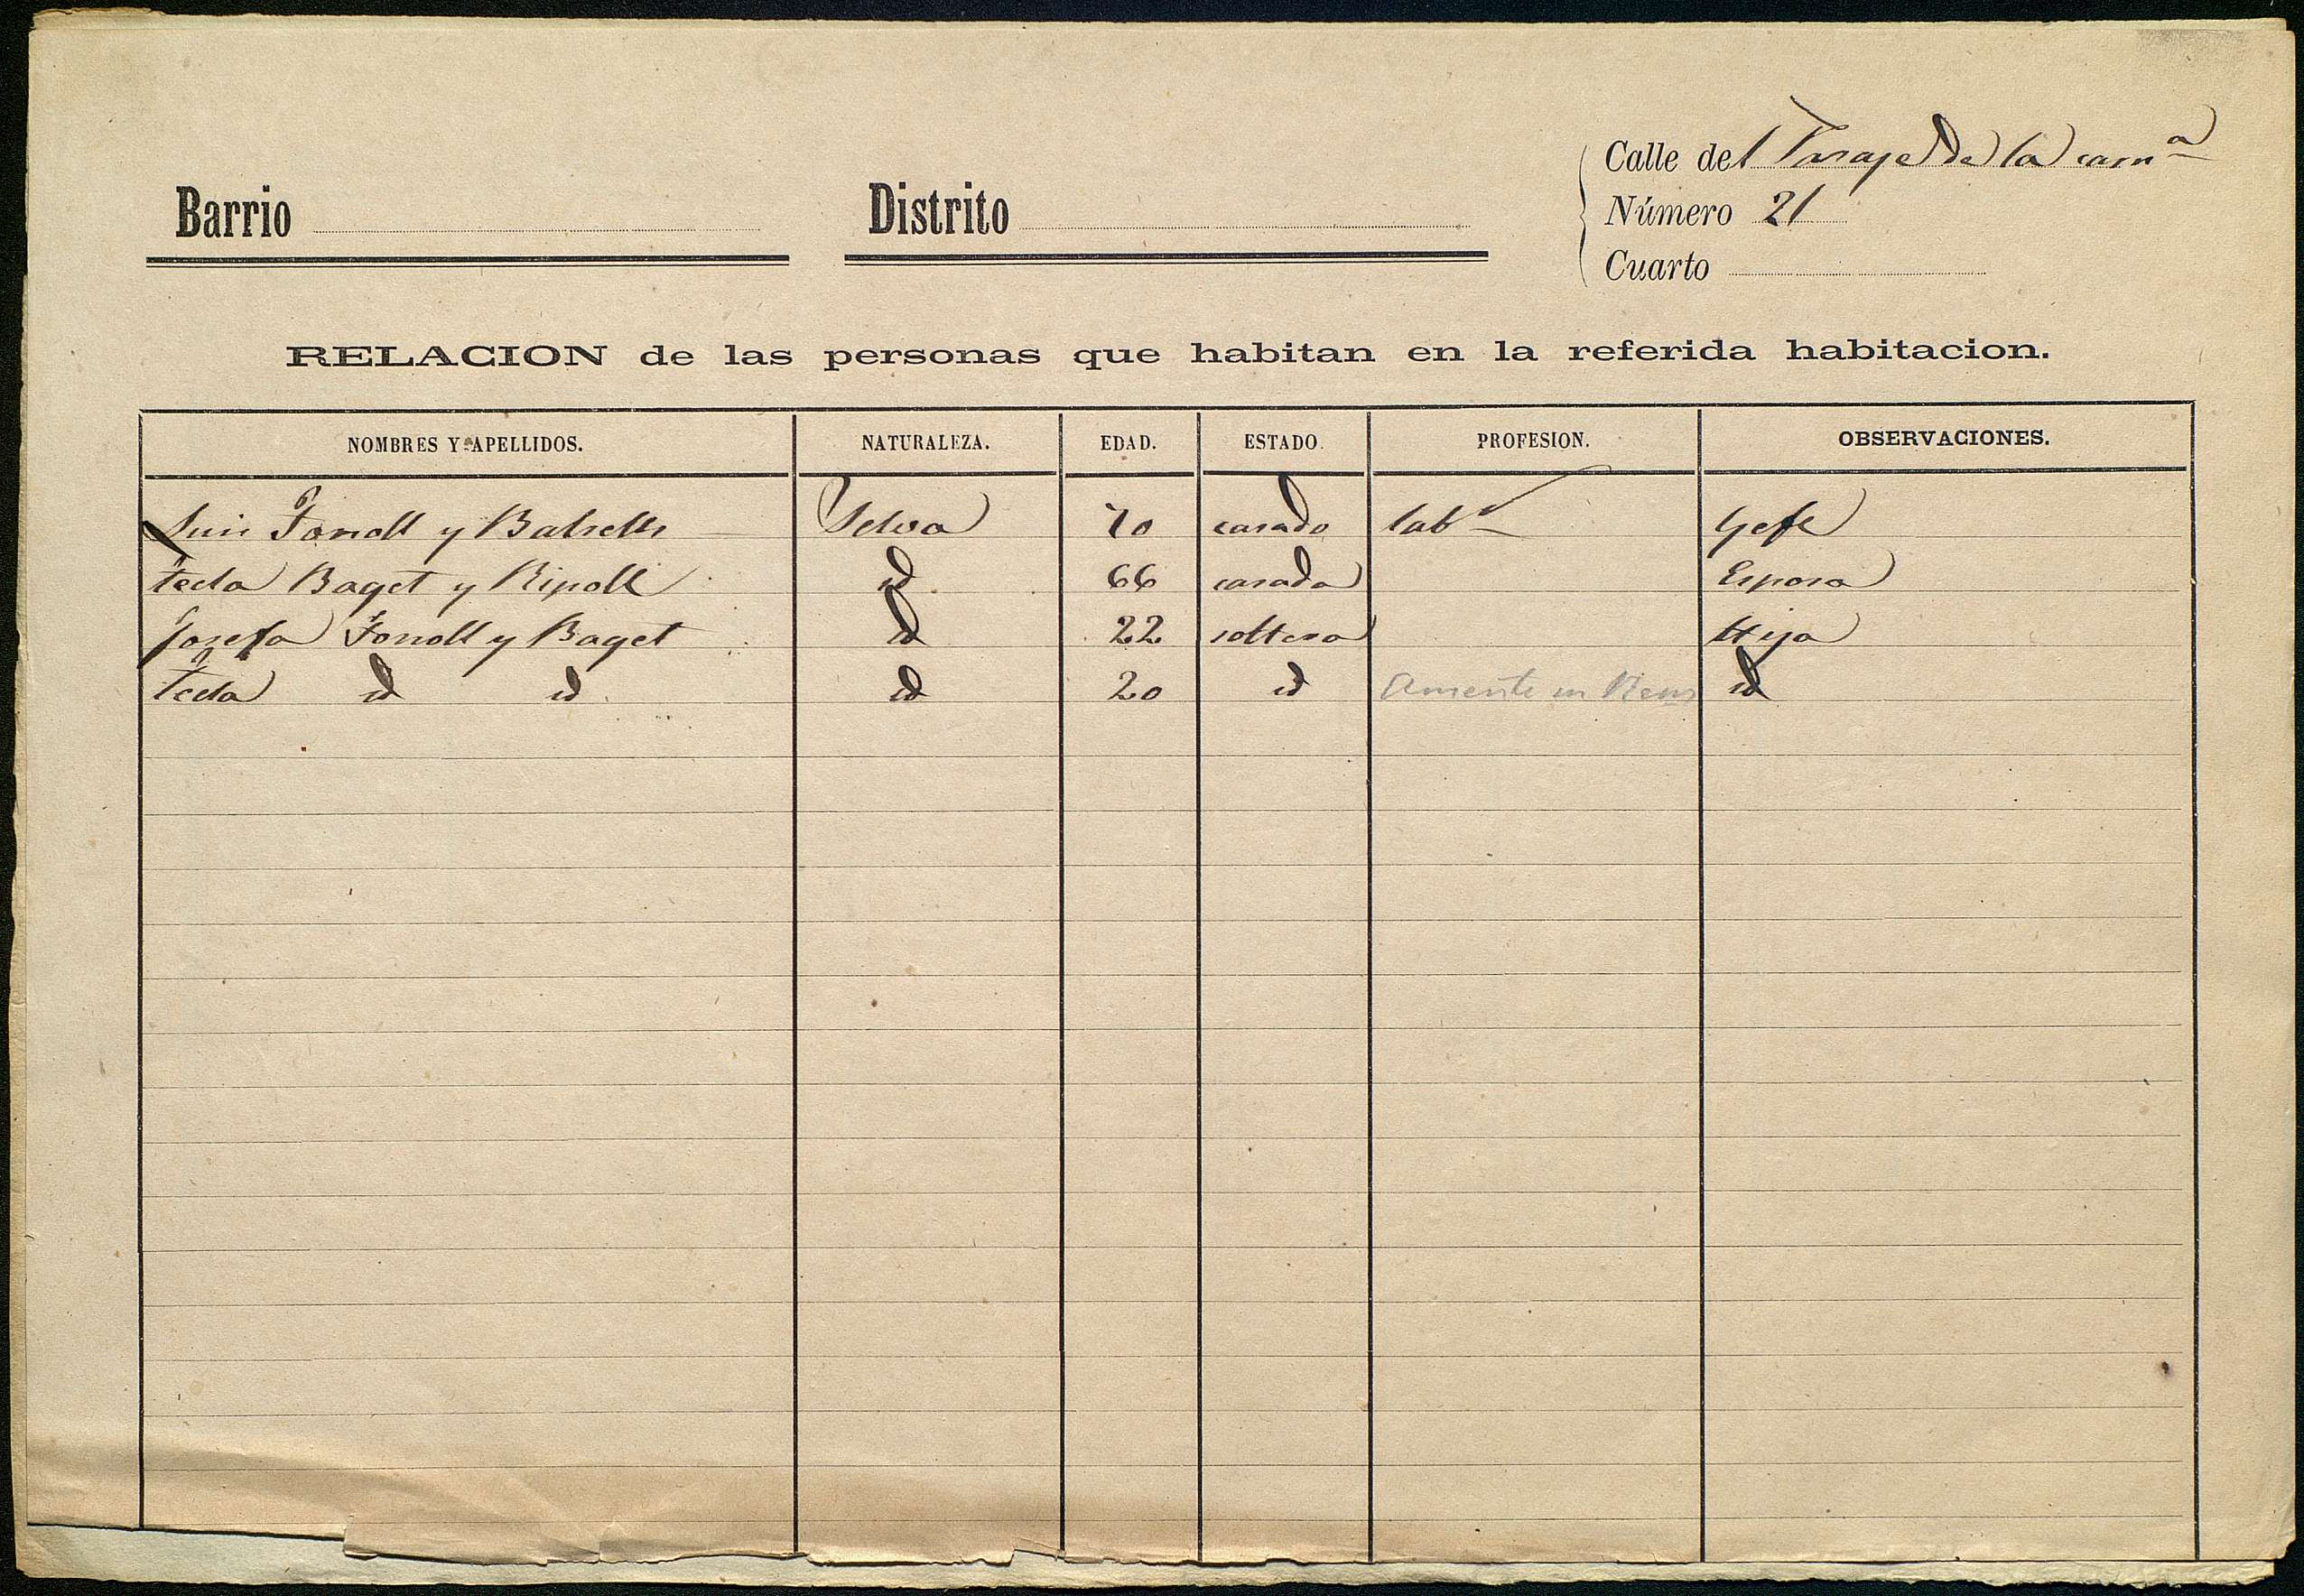 Calle del Pasaje de la carn.ª
Barrio Distrito Número 21
Cuarto
RELACION de las personas que habitan en la referida habitacion.
NOMBRES Y APELLIDOS. NATURALEZA. EDAD. ESTADO. PROFESION. OBSERVACIONES.
Luis Fonoll y Balsells Selva 70 casado lab.r Gefe
Tecla Baget y Ripoll id 66 casada Esposa
Josefa Fonoll y Baget id 22 soltera Hija
Tecla id id id 20 id en Reus id